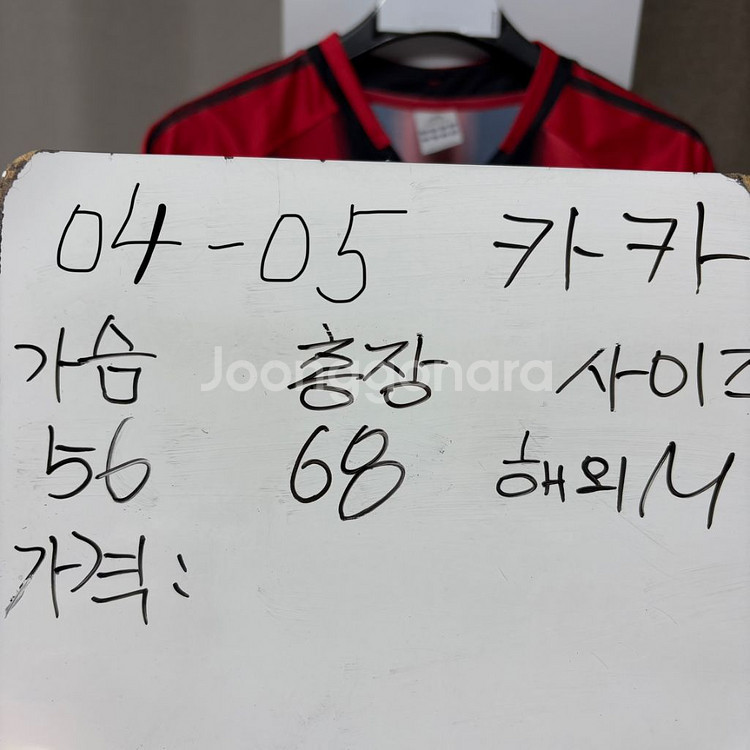 04-05 카카
가슴 총장 사이즈
56 68 해외M
가격:
Joonggonara